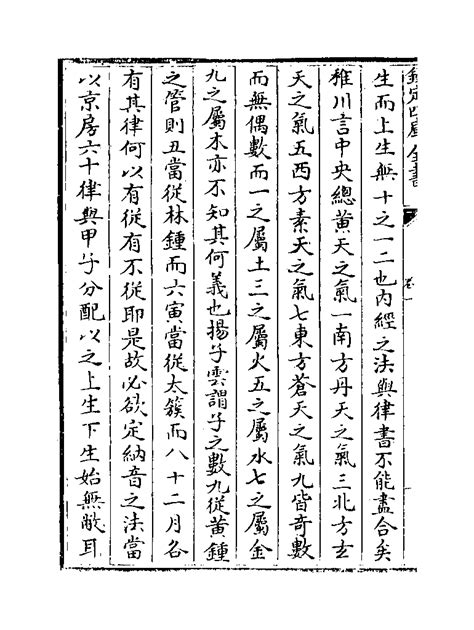 欽定四庫全書
卷一
生而上生無十之一二也內經之法與律書不能盡合矣
稚川言中央總黃天之氣一南方丹天之氣三北方玄
天之氣五西方素天之氣七東方蒼天之氣九皆奇數
而無偶數而一之屬土三之屬火五之屬水七之屬金
九之屬木亦不知其何義也揚子雲謂子之數九從黃鍾
之管則丑當從林鍾而六寅當從太簇而八十二月各
有其律何以有從有不從耶是故必欲定納音之法當
以京房六十律與甲子分配以之上生下生始無敝耳